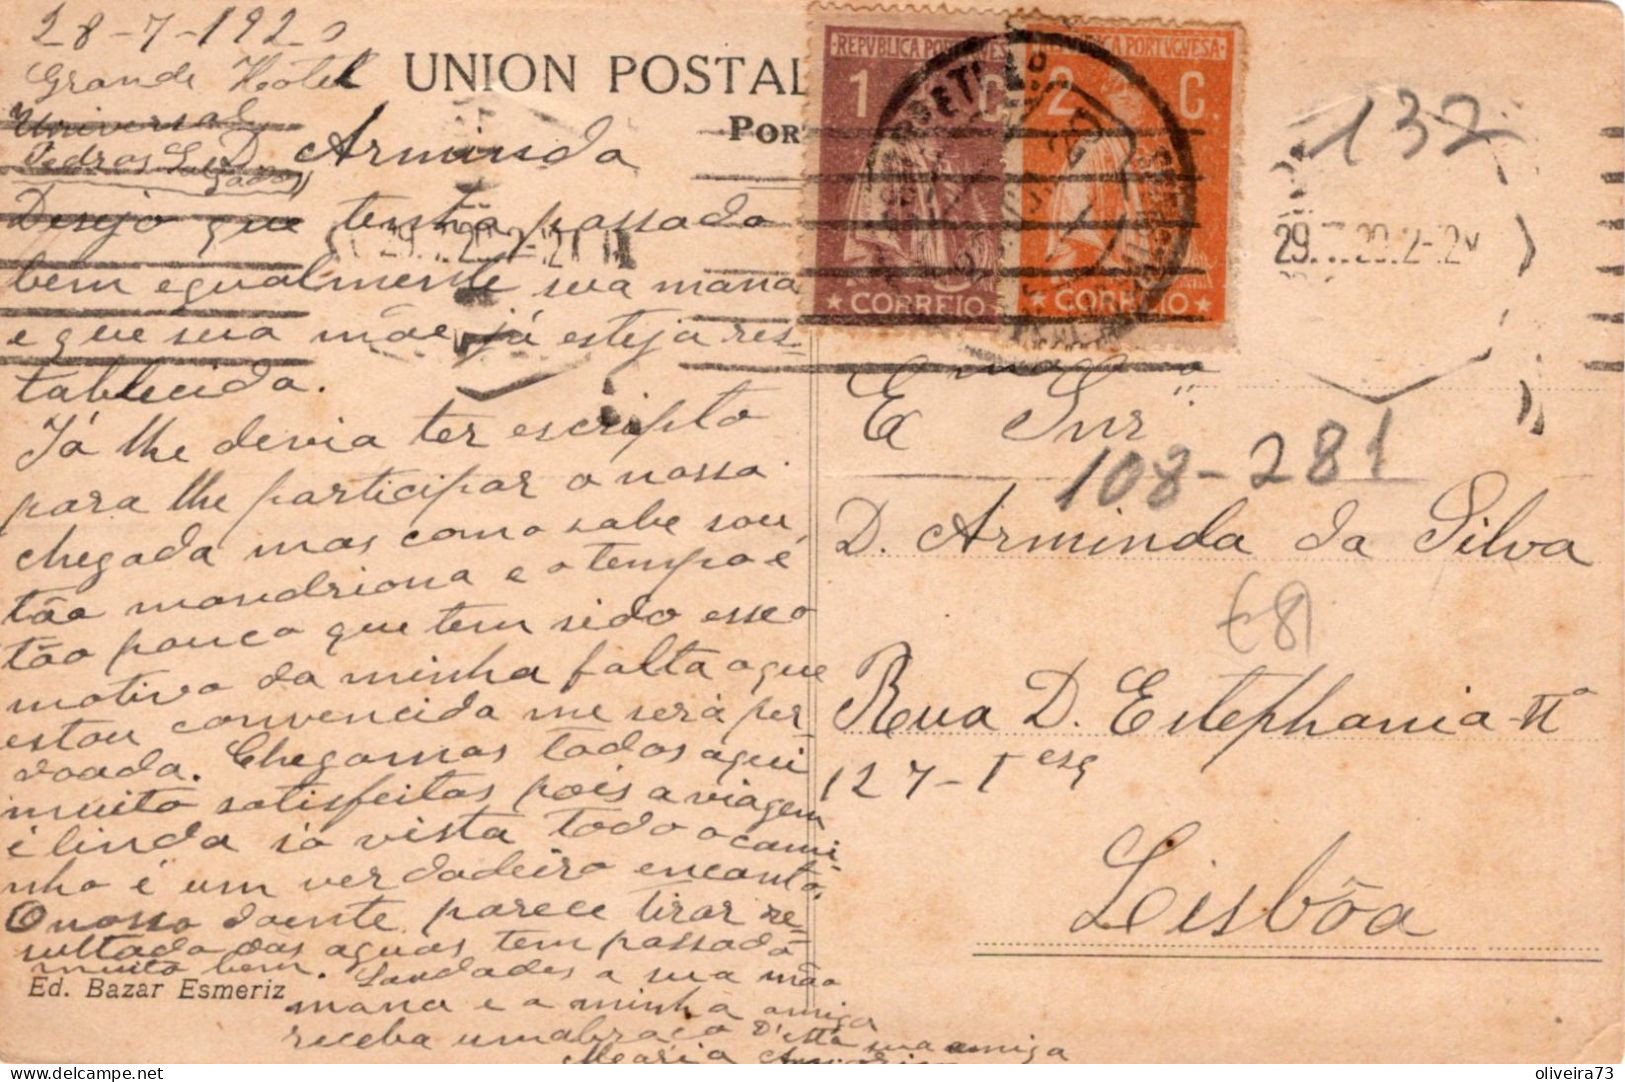 28-7-1920
Grande Hotel
Universal
Pedras Salgadas
UNION POSTAL
POR
D. Arminda
Desejo que tenha passado
bem egualmente sua mana
e que sua mãe já esteja res-
tablecida.
Já lhe devia ter escripto
para lhe participar a nossa
chegada mas como sabe sou
tão mandriona e o tempo é
tão pouco que tem sido esse o
motivo da minha falta a que
estou convencida me será per
doada. Chegamos todos aqui
muito satisfeitas pois a viagem
é linda só vista todo o cami-
nho é um verdadeiro encanto.
O nosso doente parece tirar re-
sultado das aguas tem passado
muito bem. Saudades a sua mãe
mana e a minha amiga
receba um abraço D'esta sua amiga
Maria
Ed. Bazar Esmeriz
REPVBLICA PORTVGVESA
1 C.
CORREIO
REPVBLICA PORTVGVESA
2 C.
CORREIO
132
Ex Snr
108-281
D. Arminda da Silva
€8
Rua D. Estephania nº
127-1 esq
Lisbôa
oliveira73